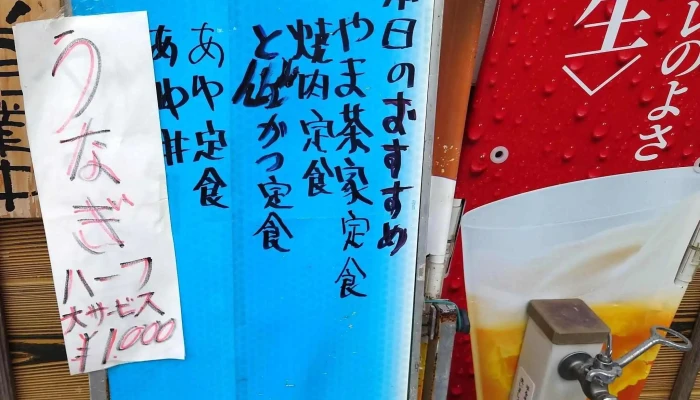 本日のおすすめ
やま茶家定食
焼肉定食
とんかつ定食
あゆ定食
あゆ丼
うなぎ
ハーフ
大サービス
¥1,000
生
のよさ